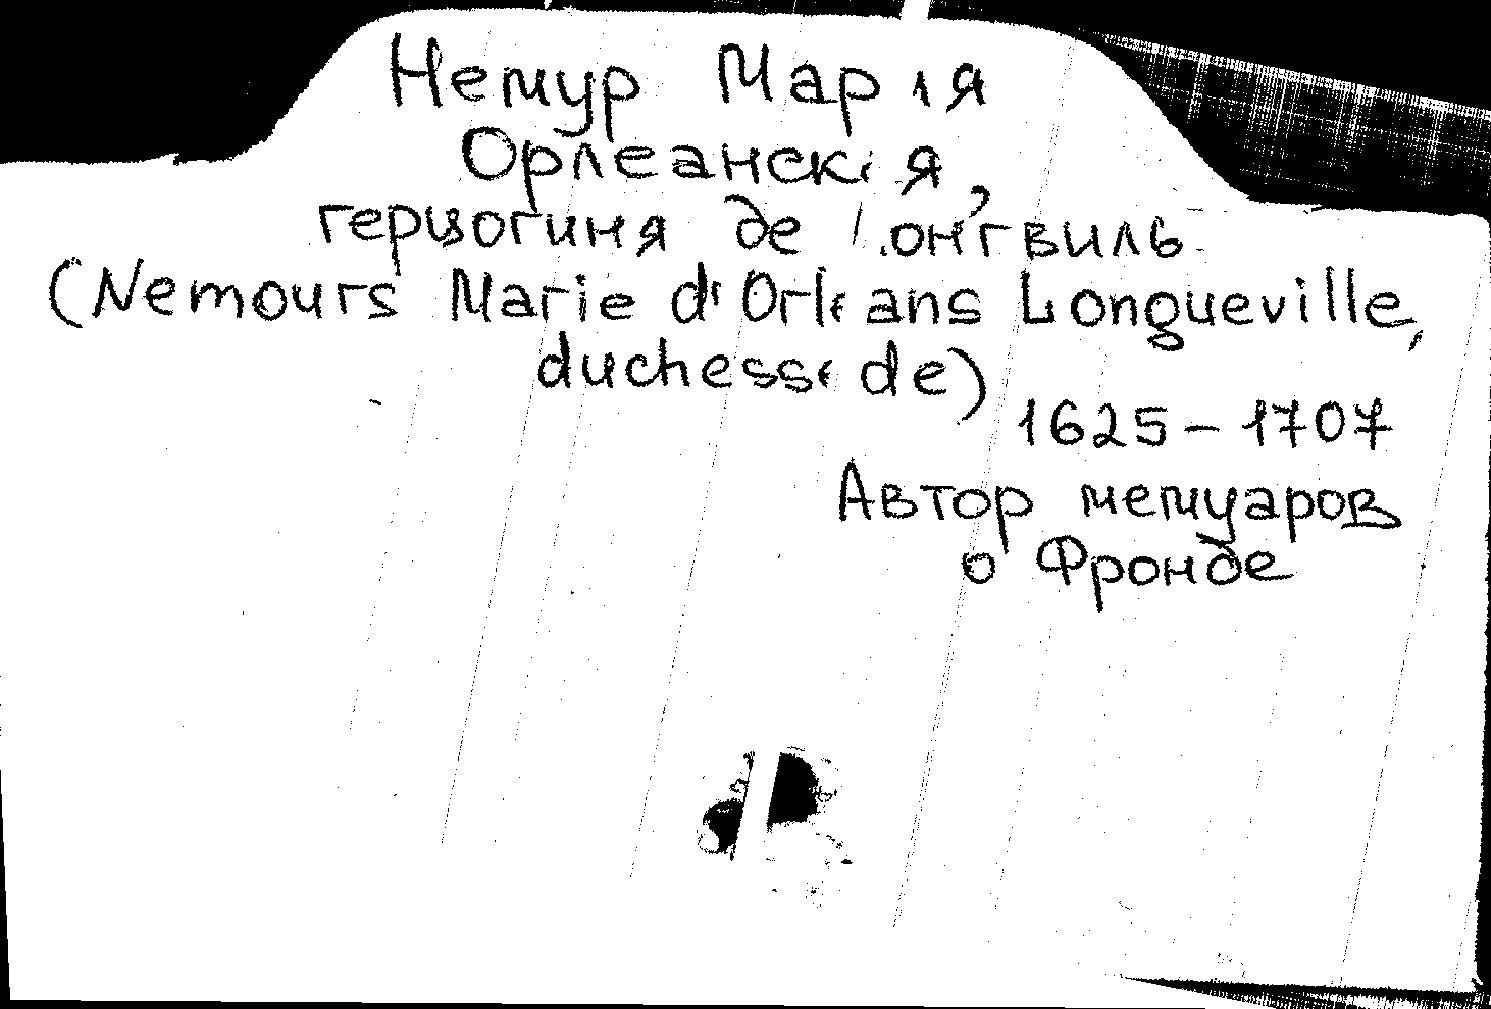 Немур Мария
Орлеанская,
герцогиня де Лонгвиль
(Nemours Marie d'Orleans Longueville,
duchesse de)
1625 - 1707
Автор мемуаров
о Фронде